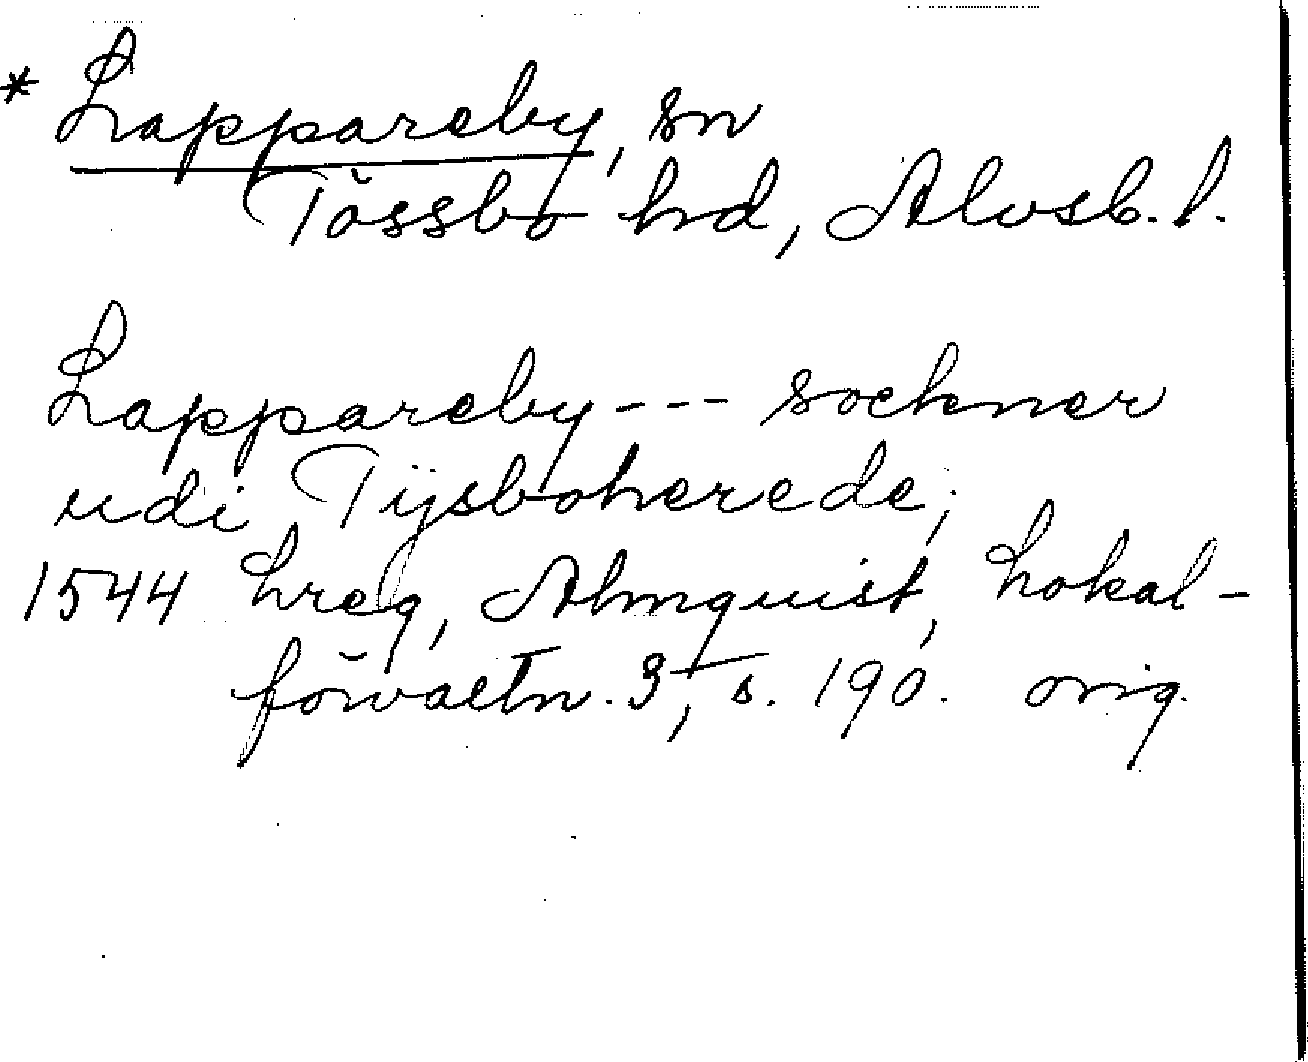 * Lappareby, sn
Tössbo hd, Älvsb. l.
Lappareby --- sockner
udi Tijsboherede;
1544 Lreg, Almquist, Lokal-
förvaltn. 3, s. 190. orig.